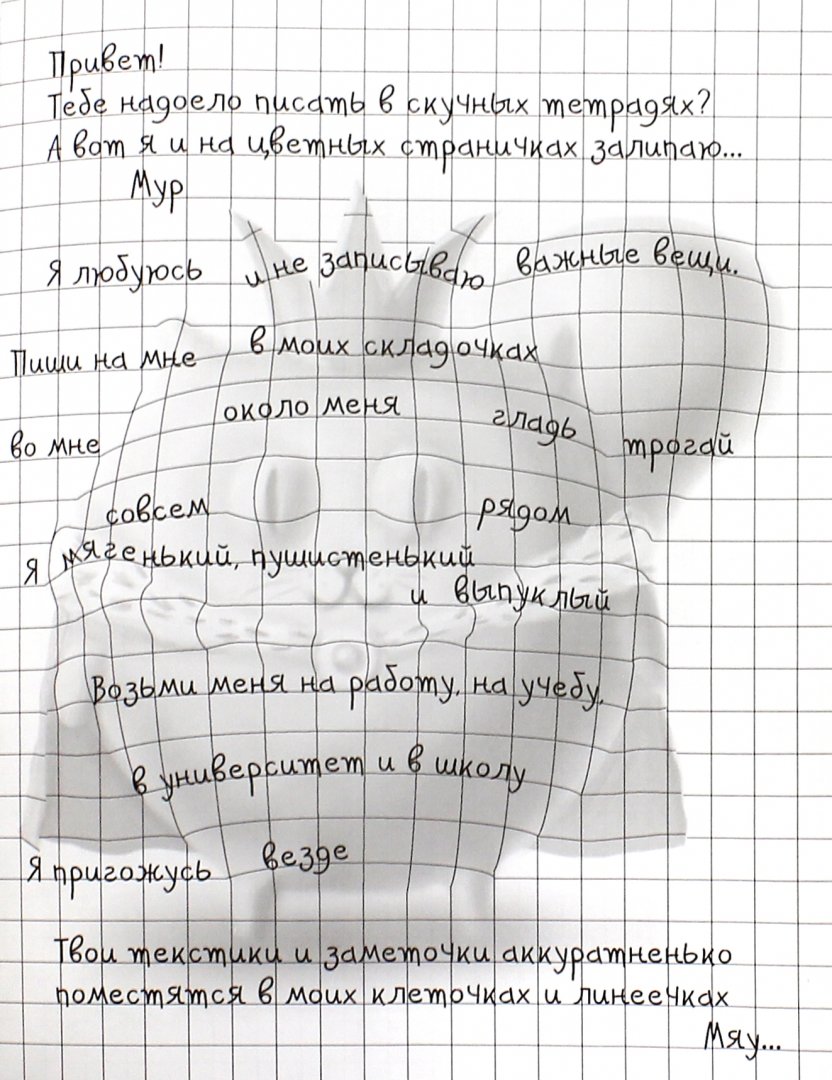 Привет!
Тебе надоело писать в скучных тетрадях?
А вот я и на цветных страничках залипаю...
Мур
Я любуюсь и не записываю важные вещи.
Пиши на мне в моих складочках
во мне около меня гладь трогай
совсем рядом
Я мягенький, пушистенький
и выпуклый
Возьми меня на работу, на учебу,
в университет и в школу
Я пригожусь везде
Твои текстики и заметочки аккуратненько
поместятся в моих клеточках и линеечках
Мяу...